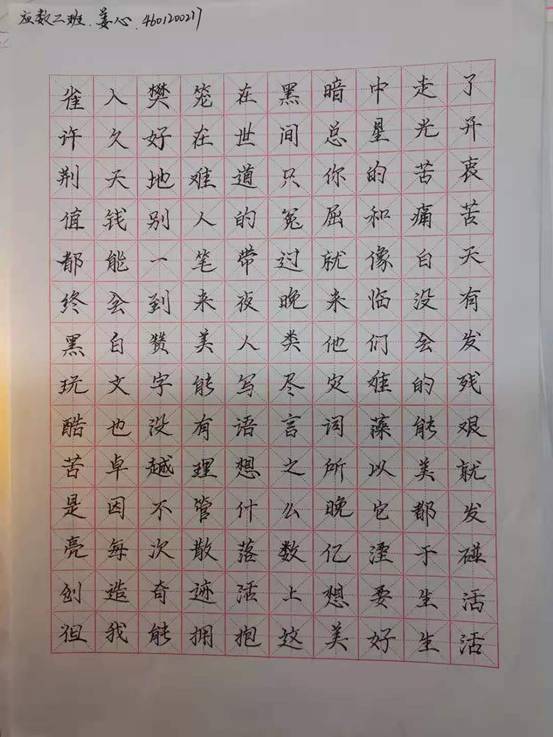 应数二班.姜心.460120021七
雀入樊笼在黑暗中走了
许久好在世间总星光开
荆天地难道只你的苦衷
值钱别人的冤屈和痛苦
都能一笔带过就像白天
终会到来夜晚来临没有
黑白赞美人类他们会发
玩文字能写尽灾难的残
酷也没有语言词藻能艰
苦卓越理想之所以美就
是因不管什么晚它都发
亮每次散落数亿湮于碰
创造奇迹活上想要生活
徂我能拥抱这美好生活